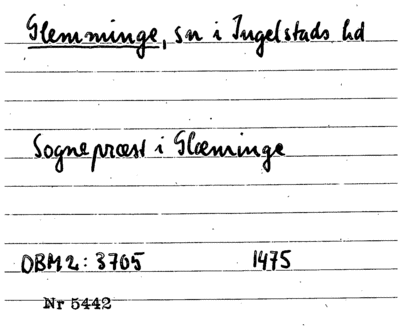 Glemminge, sn i Ingelstads hd
Sognepræst i Glæminge
DBM 2: 3705 1475
Nr 5442